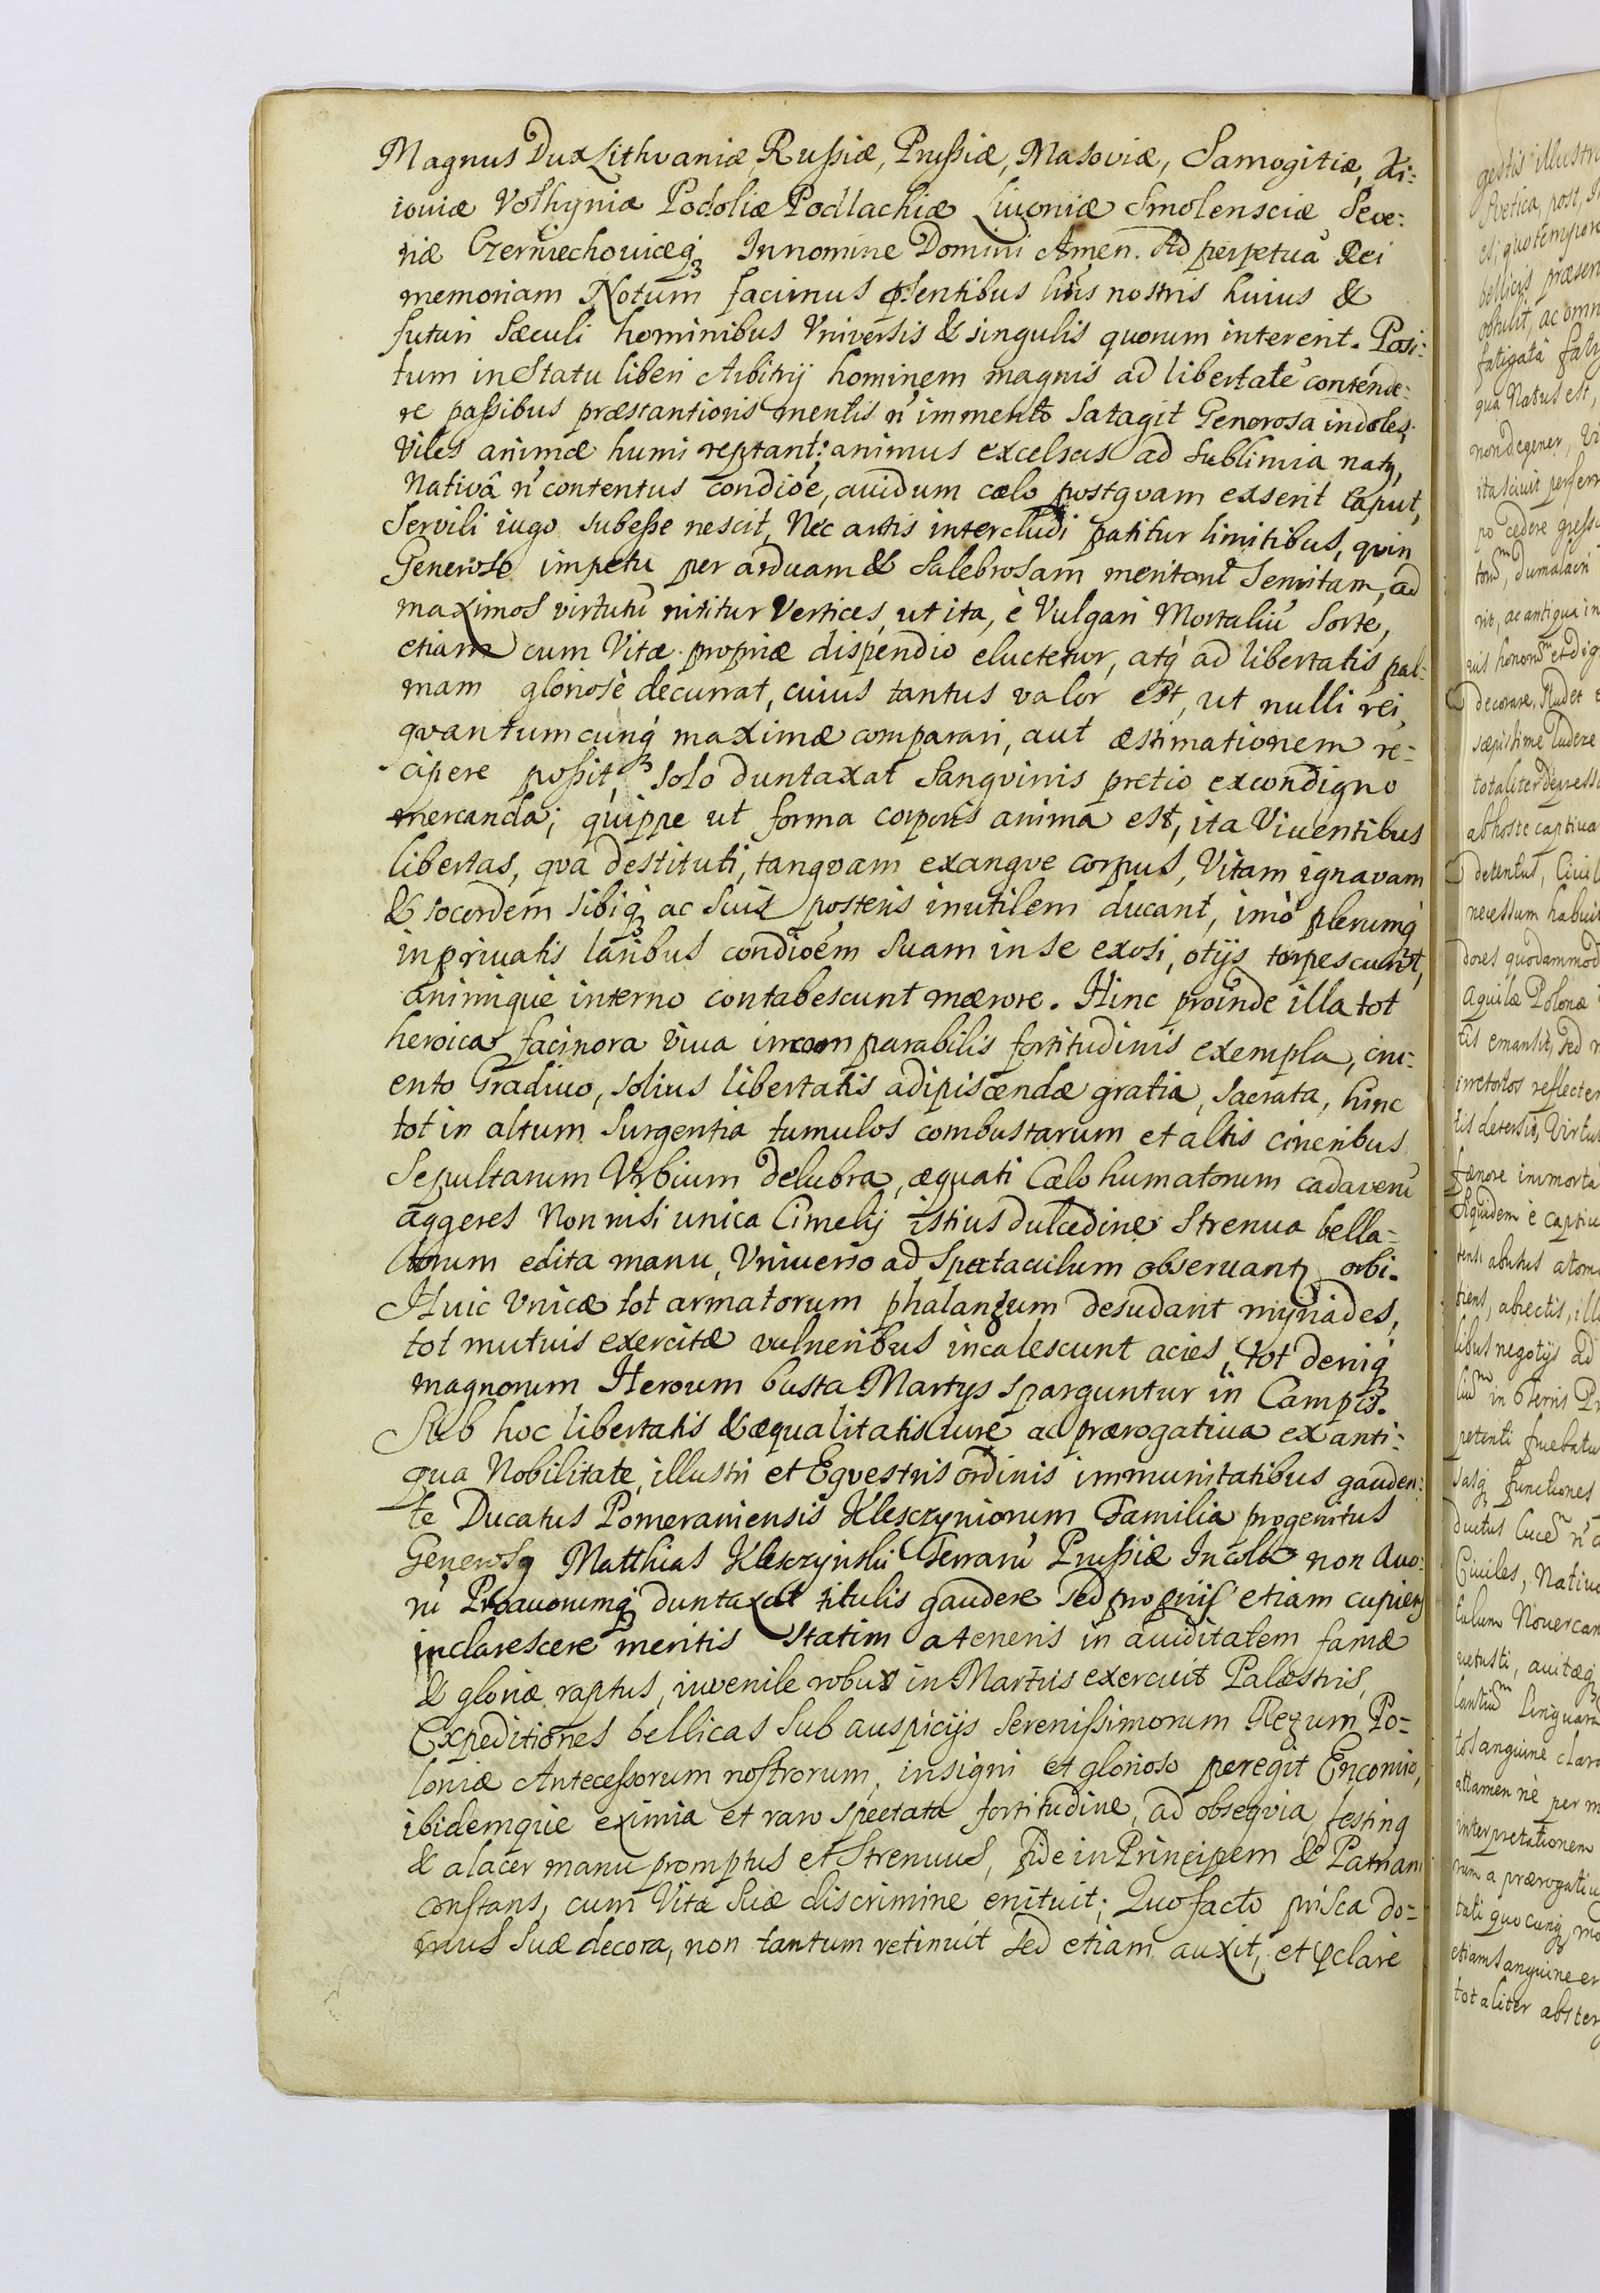 Magnus Dux Lithvaniæ, Rußiæ, Prußiæ, Masoviæ, Samogitiæ, Ki:
iouiæ Volhyniæ Podoliæ Podlachiæ Liuoniæ Smolensciæ Seve:
riæ Czerniechouiæq3 In nomine Domini Amen. Ad perpetuā Rei
memoriam Notum facimus p̃sentibus lris nostris huius &
futuri Sæculi hominibus Vniversis & singulis quorum intererit. Posi:
tum in Statu liberi Arbitrij hominem magnis ad libertatē contende:
re paßibus præstantioris mentis ñ immerito Satagit Generosa indoles,
Viles animæ humi reptant: animus excelsus ad Sublimia nat9,
Nativâ ñ contentus condiōe, auidum cælo postqvam exserit Caput,
Servili iugo subeße nescit, Nec arctis intercludi patitur limitibus, qvin
Generoso impetu per arduam & Salebrosam meritorū Semitam, ad
maximos virtutū nititur Vertices, ut ita, è Vulgari Mortaliū Sorte,
etiam cum Vitæ propriæ dispendio eluctetur, atq́ ad libertatis pal:
mam gloriosè decurrat, cuius tantus valor est, ut nulli rei,
qvantumcunq́ maximæ comparari, aut æstimationem re-
cipere poßit, solo duntaxat Sangvinis pretio excondigno
mercanda; quippe ut forma corporis anima est, ita Viuentibus
libertas, qva destituti, tanqvam exangve corpus, Vitam ignavam
& socordem sibiq3 ac Suis posteris inutilem ducant, imò plerumq́
in privatis laribus condioēm Suam in se exosi, otijs torpescunt,
animique interno contabescunt mærore. Hinc proinde illa tot
heroica facinora viua incomparabilis fortitudinis exempla, cru:
ento Gradiuo, solius libertatis adipiscendæ gratia, sacrata, hinc
tot in altum Surgentia tumulos combustarum et altis cineribus
Sepultarum Vrbium delubra, æquati Cælo humatorum cadaverū
aggeres Non nisi unica Cimelij istius dulcedine Strenua bella-
torum edita manu, Vniuerso ad Spectaculum obseruant9 orbi.
Huic Vnicæ tot armatorum phalangum desudant myriades,
tot mutuis exercitæ vulneribus incalescunt acies, tot deniq́
magnorum Heroum busta Martys sparguntur in Campis.
Sub hoc libertatis & æqualitatis iure ac prærogatiua ex anti:
qua Nobilitate, illustri et Eqvestris ordinis immunitatibus gauden:
te Ducatus Pomeraniensis Klesczyniorum Familia progenitus
Generos9 Matthias Klesczynski Terrarū Prußiæ Incola non Auo:
rū Proauorumq3 duntaxat titulis gaudere sed proprijs etiam cupiens
inclarescere meritis Statim a teneris in auiditatem famæ
& gloriæ raptus, iuvenile robur in Martiis exercuit Palæstris,
Expeditiones bellicas Sub auspicijs Serenißimorum Regum Po-
loniæ Anteceßorum nostrorum, insigni et glorioso peregit Encomio,
ibidemque eximia et raro spectata fortitudine, ad obseqvia festin9
& alacer manu promptus et Strenuus, fide in Principem & Patriam
constans, cum Vitæ Suæ discrimine enituit; Quo facto prisca do-
mus Suæ decora, non tantum retinuit sed etiam auxit, et p̃clare